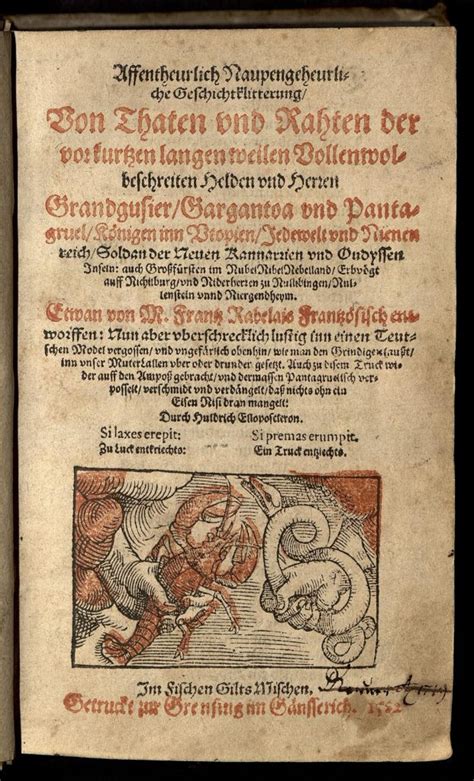 Affentheurlich Naupengeheurli-
che Geschichtklitterung/
Von Thaten vnd Rahten der
vor kurtzen langen weilen Vollenwol-
beschreiten Helden vnd Herren
Grandgusier/Gargantoa vnd Panta-
gruel/Königen inn Vtopien/Jedewelt vnd Nienen
reich/Soldan der Neuen Kannarrien vnd Oudyssen
Inseln: auch Großfürsten im NubelNibelNebelland/Erbvögt
auff Nichilburg/vnd Niderherren zu Nullibingen/Nul-
lenstein vnnd Niergendheym.
Etwan von M. Frantz Rabelais Frantzösisch ent-
worffen: Nun aber vberschrecklich lustig inn einen Teut-
schen Model vergossen/vnd vngefärlich obenhin/wie man den Grindigen laußt/
inn vnser MuterLallen vber oder drunder gesetzt. Auch zu disem Truck wi-
der auff den Ampoß gebracht/vnd dermassen Pantagruelisch ver-
posselt/verschmidt vnd verdängelt/daß nichts ohn ein
Eisen Nisi dran mangelt:
Durch Huldrich Elloposcleron.
Si laxes erepit: Si premas erumpit.
Zu Luck entkriechts: Ein Truck entziechts.
Im Fischen Gilts Mischen.
Getruckt zur Grenfing im Gänsserich.